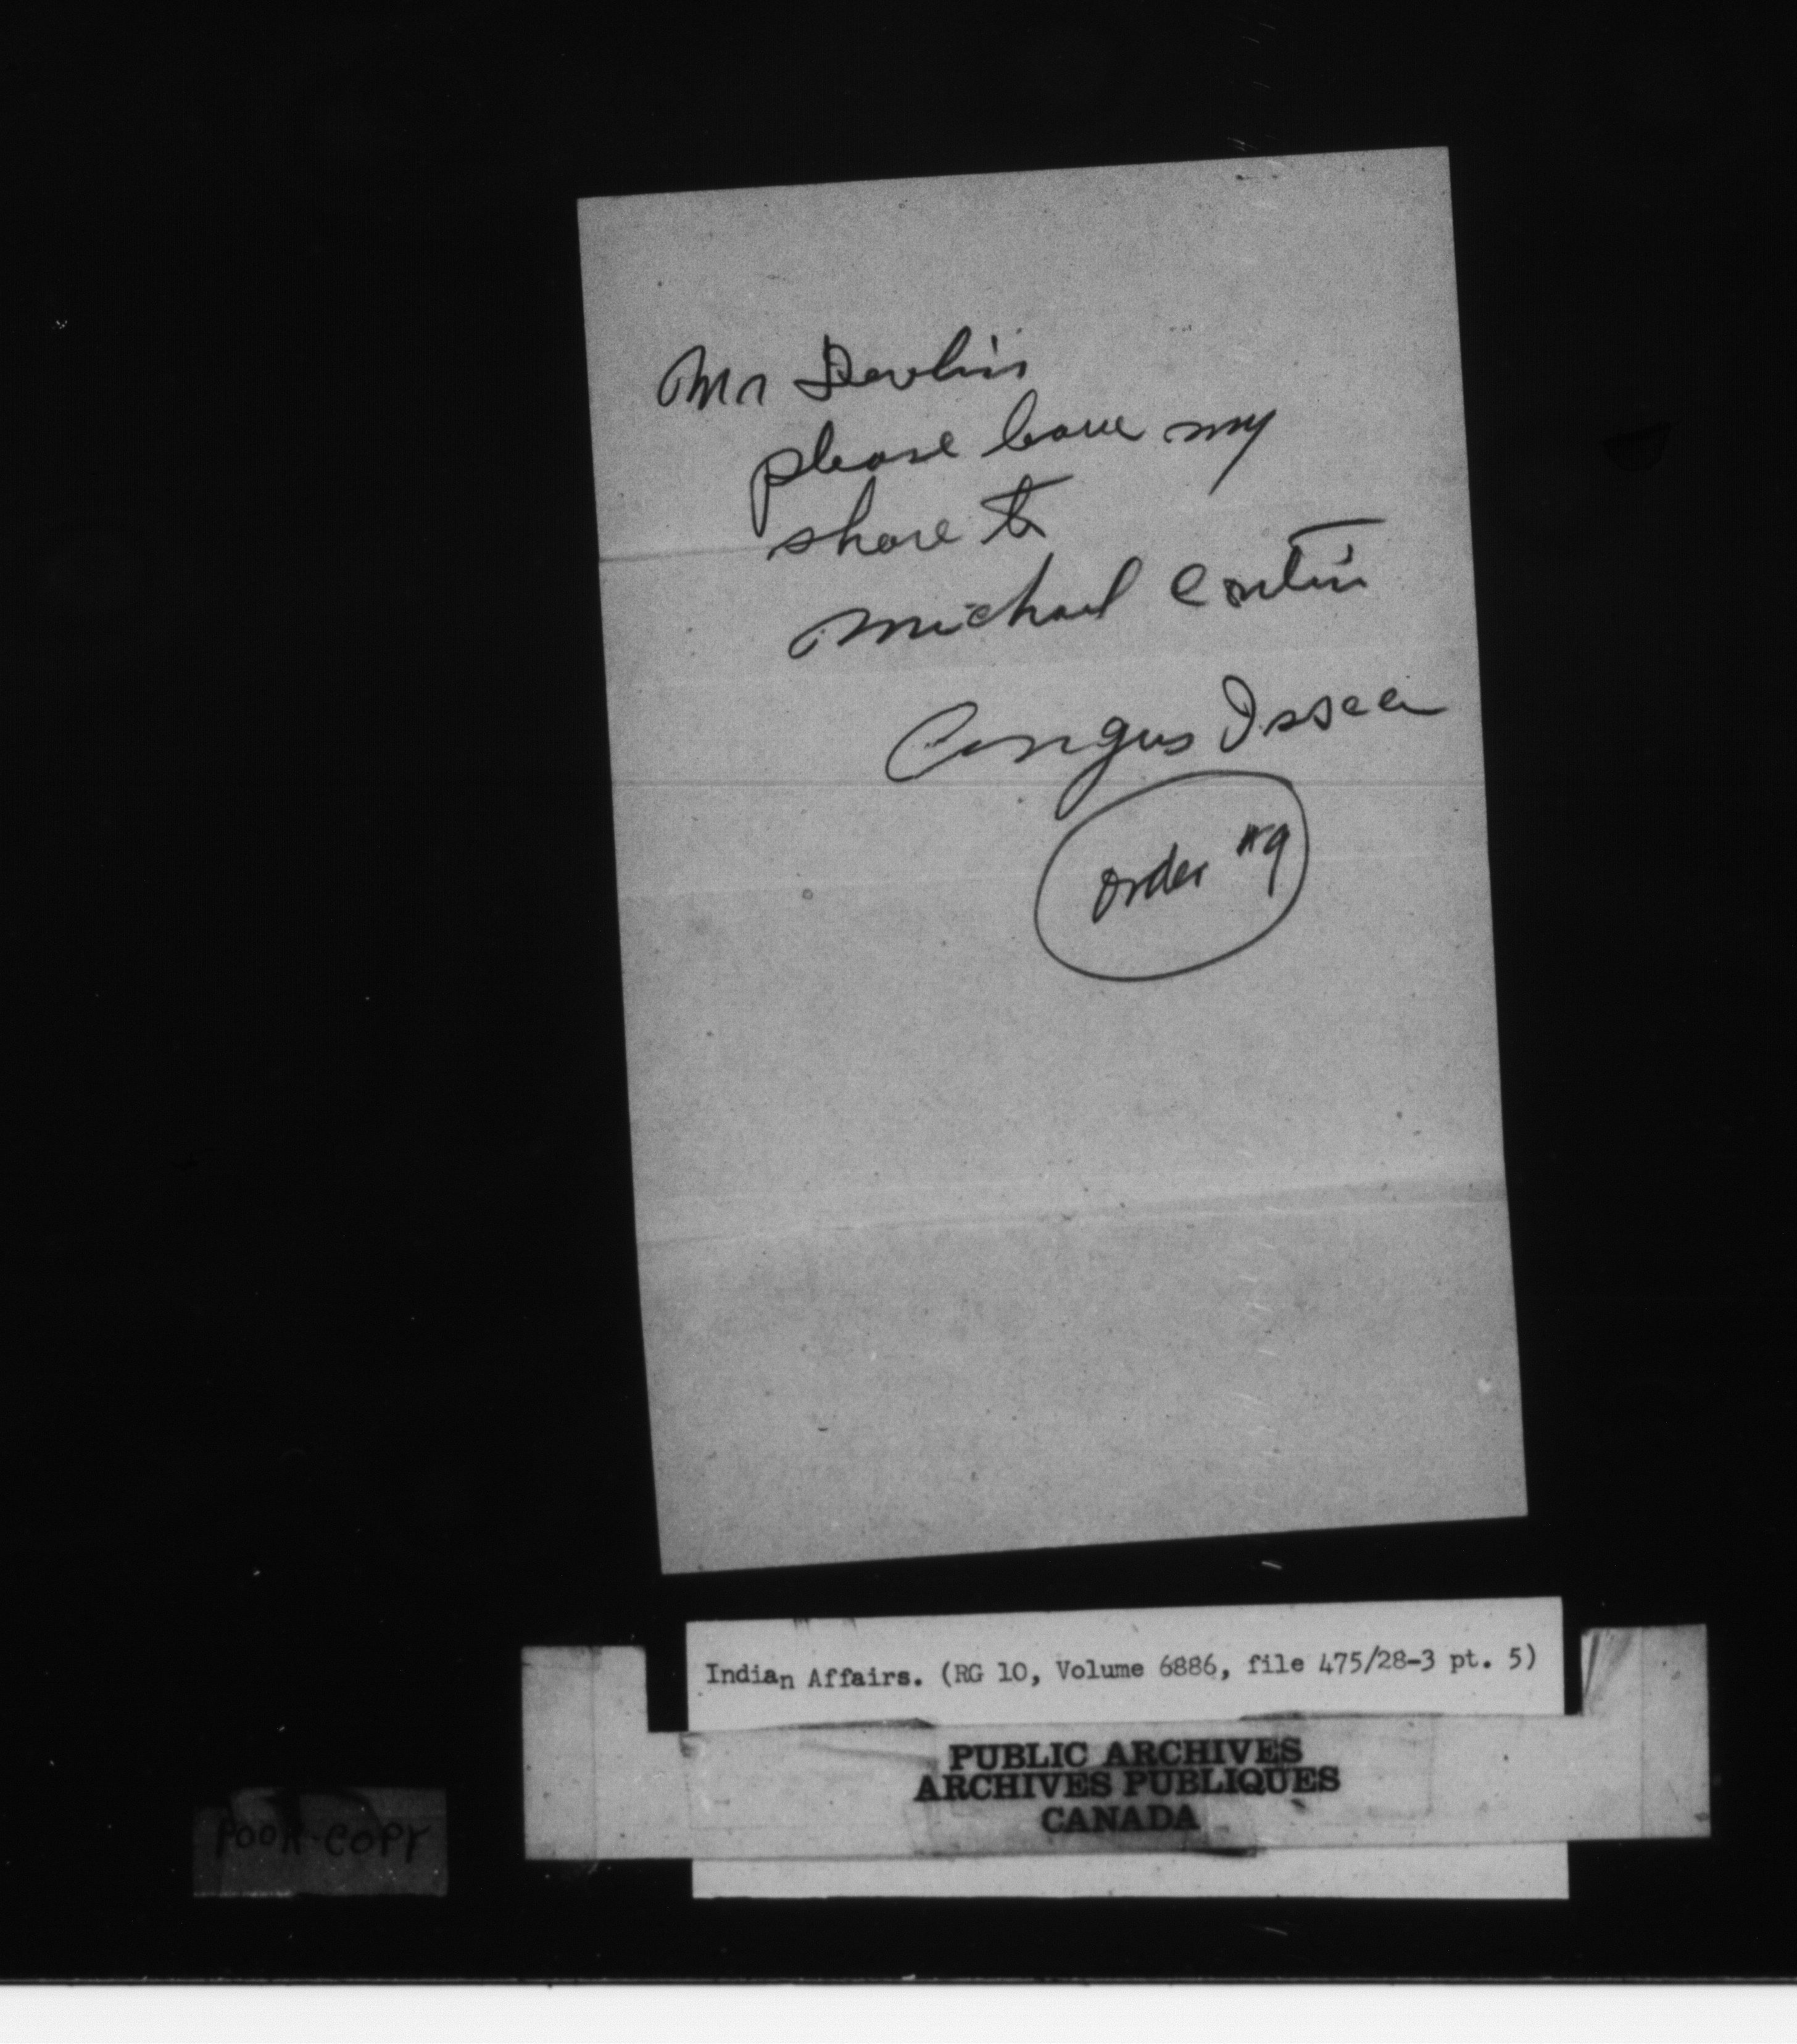 Mr Devlin
please leave my
share to
Michael Contin
Angus Issac
Order #9
Indian Affairs. (RG 10, Volume 6886, file 475/28-3 pt. 5)
PUBLIC ARCHIVES
ARCHIVES PUBLIQUES
CANADA
POOR COPY